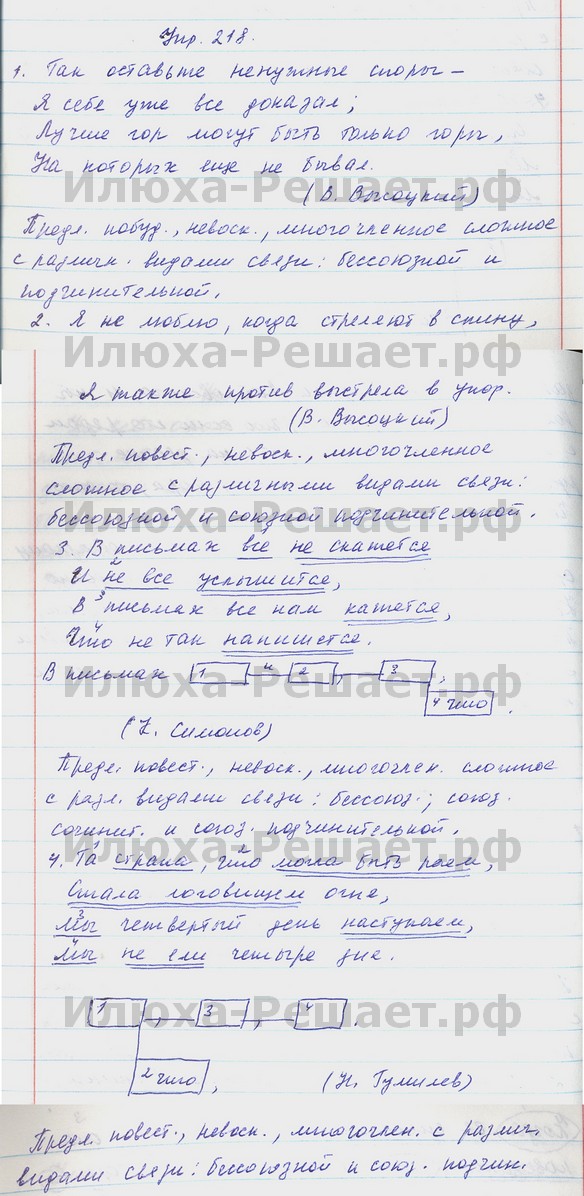 Упр. 218.
1. Так оставьте ненужные споры –
Я себе уже все доказал;
Лучше гор могут быть только горы,
На которых еще не бывал.
Илюха-Решает.рф
(В. Высоцкий)
Предл. побуд., невоск., многочленное сложное
с различн. видами связи: бессоюзной и
подчинительной.
2. Я не люблю, когда стреляют в спину,
Илюха-Решает.рф
Я также против выстрела в упор.
(В. Высоцкий)
Предл. повест., невоск., многочленное
сложное с различными видами связи:
бессоюзной и союзной подчинительной.
3. В письмах все не скажется
И 2 не все услышится,
В 3 письмах все нам кажется,
4 Что не так напишется.
В письмах 1 и 2, 3,
Илюха-Решает.рф
4 что.
(К. Симонов)
Предл. повест., невоск., многочлен. сложное
с разл. видами связи: бессоюз.; союз.
сочинит. и союз. подчинительной.
Илюха-Решает.рф
4. Та 1 страна, 2 что могла быть раем,
Стала логовищем огня,
3 Мы четвертый день наступаем,
4 Мы не ели четыре дня.
1, 3, 4.
Илюха-Решает.рф
2 что, (Н. Гумилев)
Предл. повест., невоск., многочлен. с различ.
видами связи: бессоюзной и союз. подчин.